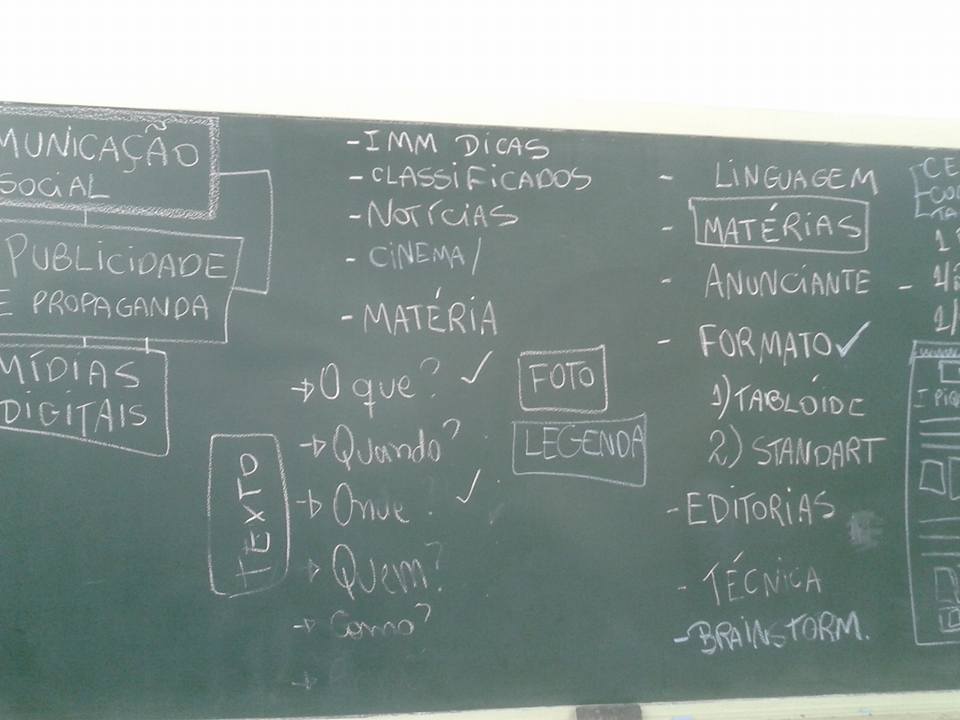 MUNICAÇÃO
SOCIAL
PUBLICIDADE
E PROPAGANDA
MÍDIAS
DIGITAIS
- IMM DICAS
- CLASSIFICADOS
- NOTÍCIAS
- CINEMA/
- MATÉRIA
→ O que? ✓
→ Quando?
→ Onde? ✓
→ Quem?
→ Como?
TEXTO
FOTO
LEGENDA
- LINGUAGEM
- MATÉRIAS
- ANUNCIANTE
- FORMATO ✓
1) TABLÓIDE
2) STANDART
- EDITORIAS
- TÉCNICA
- BRAINSTORM.
CE
TA